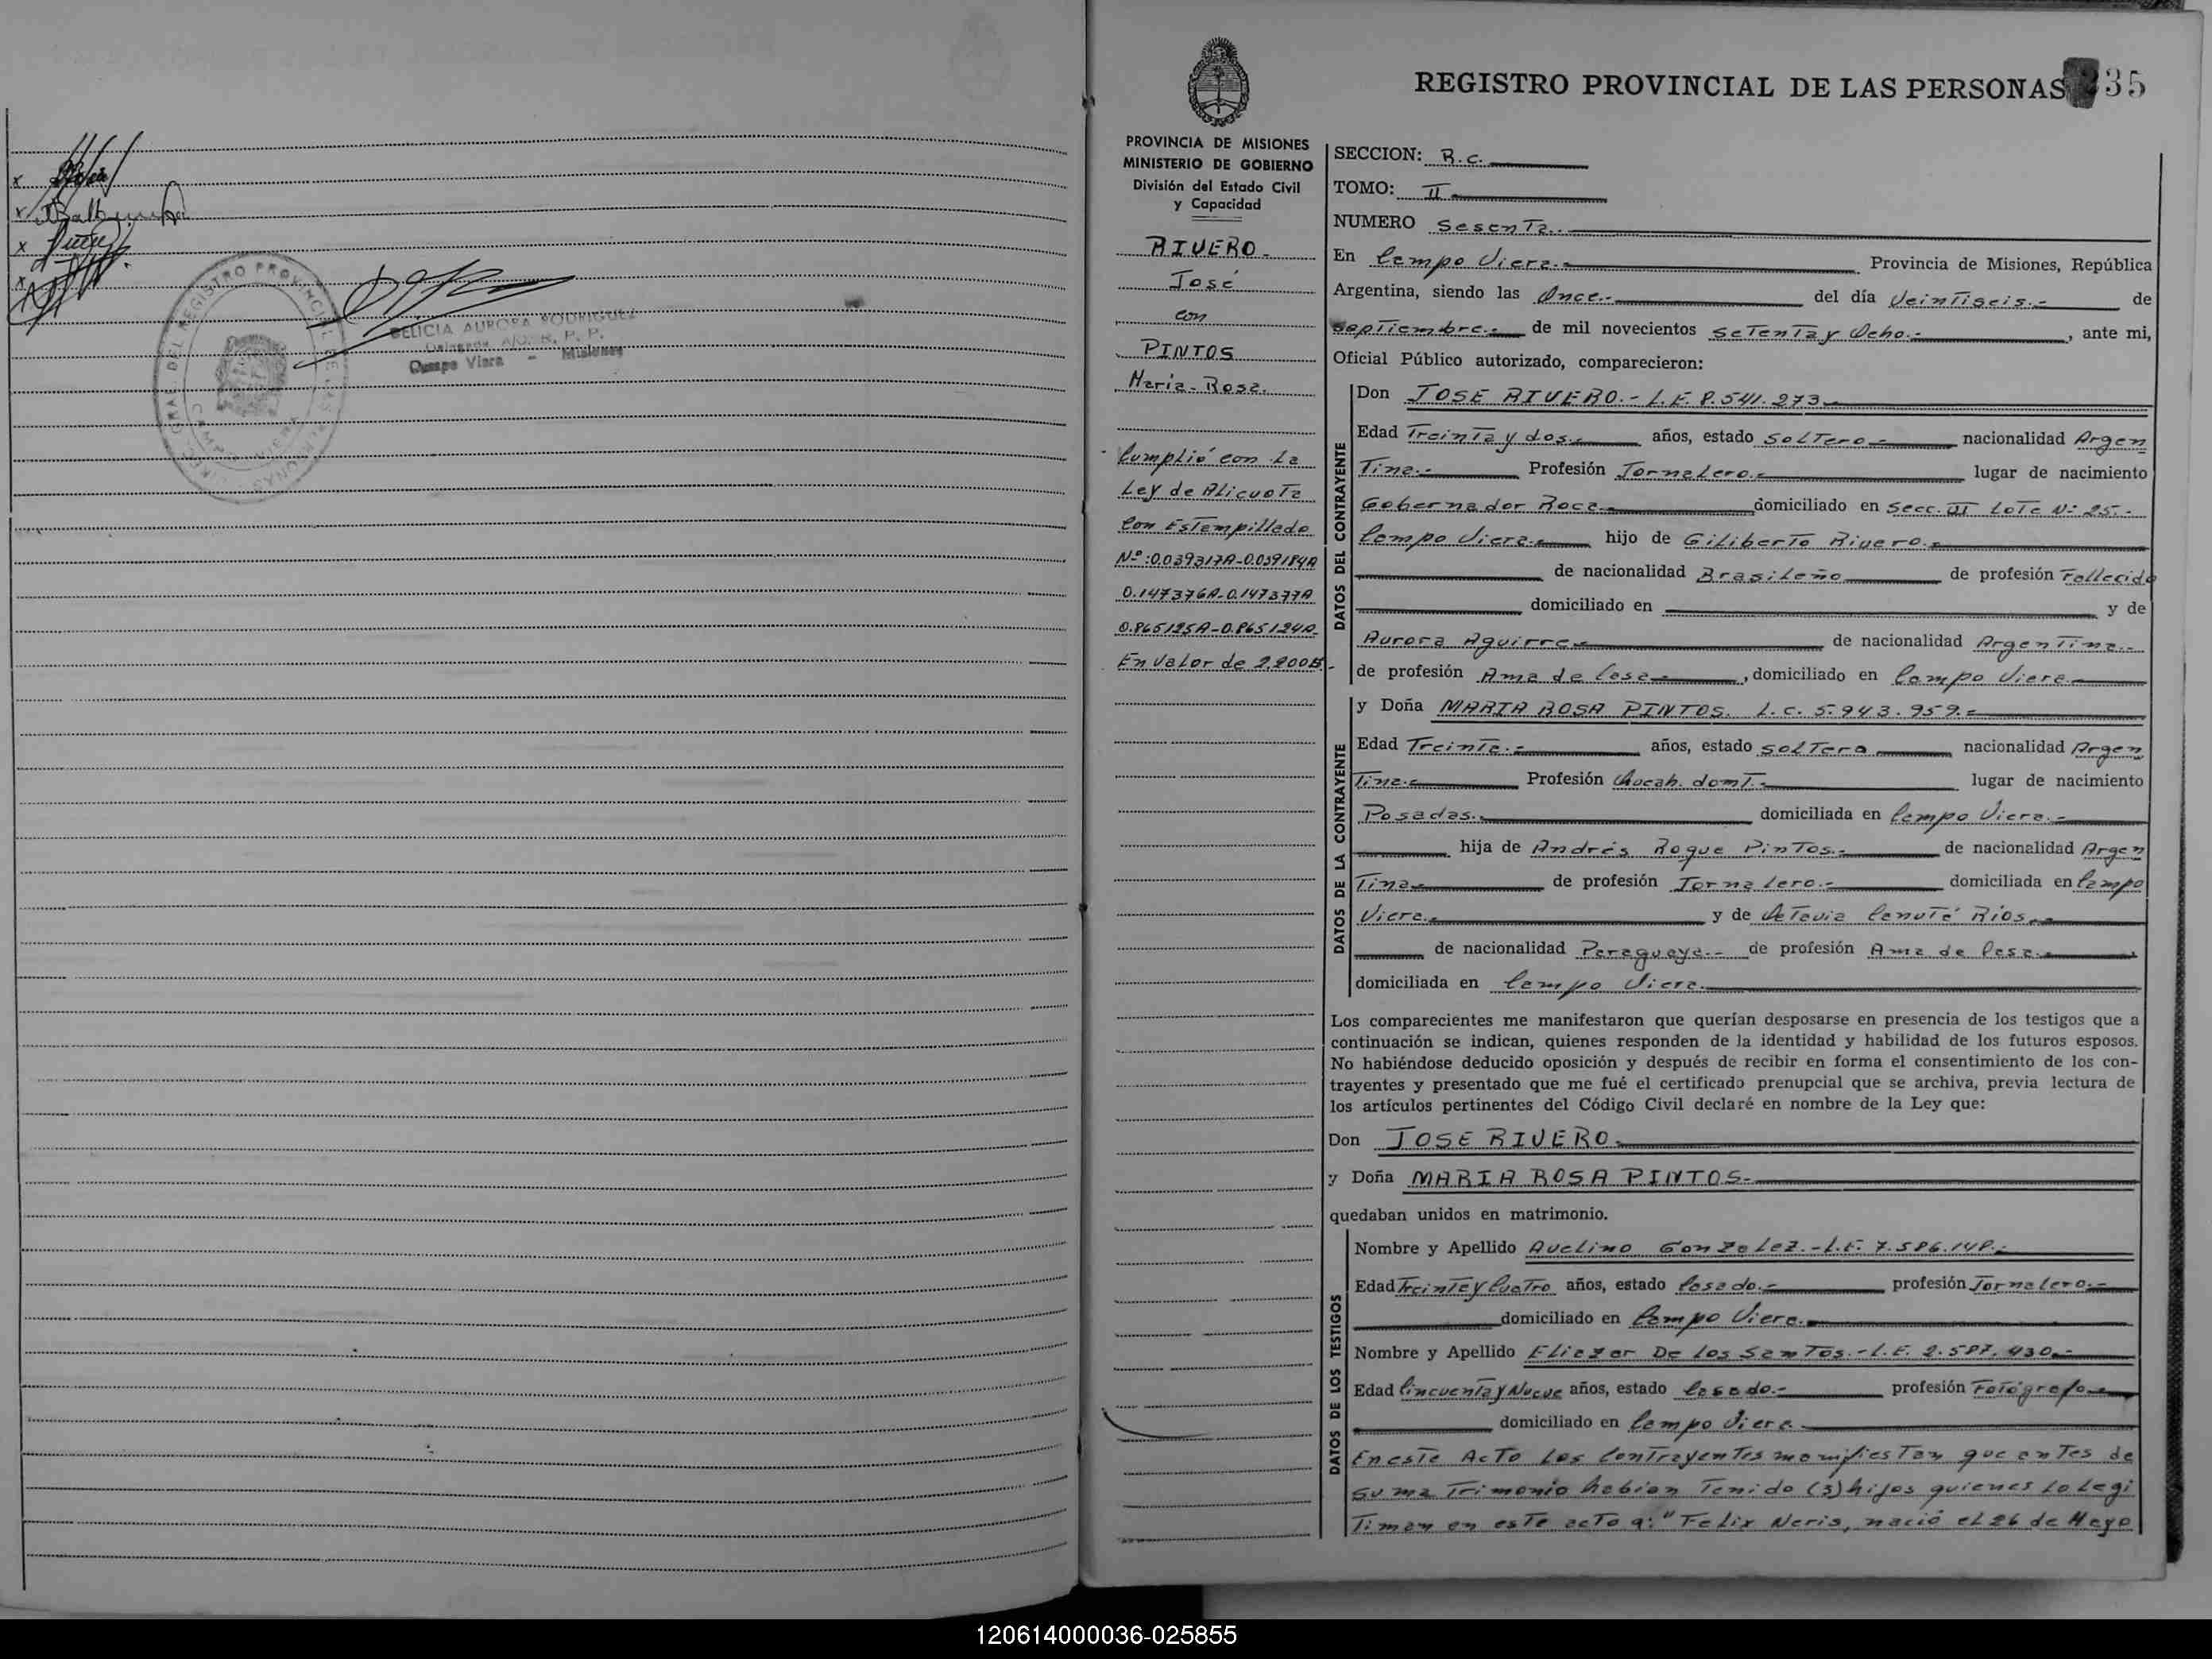 DELICIA AURORA RODRIGUEZ
Campo Viera - Misiones
REGISTRO PROVINCIAL DE LAS PERSONAS
35
PROVINCIA DE MISIONES
MINISTERIO DE GOBIERNO
División del Estado Civil
y Capacidad
RIVERO.
José
con
PINTOS
María-Rosa.
Cumplió con La
Ley de Alicuota
Con Estampillado
Nº:0.039317A-0.039184A
0.147376A-0.147377A
0.865125A-0.865124A-
En Valor de 2.200$.-
SECCION: R.C.
TOMO: II
NUMERO Sesenta.
En Campo Viera.- Provincia de Misiones, República
Argentina, siendo las Once.- del día Veintiseis.- de
Septiembre.- de mil novecientos Setenta y Ocho.-, ante mi,
Oficial Público autorizado, comparecieron:
DATOS DEL CONTRAYENTE
Don JOSE RIVERO.- L.E. 8.541.273
Edad Treinta y dos.- años, estado Soltero.- nacionalidad Argen
Tina.- Profesión Jornalero.- lugar de nacimiento
Gobernador Roca domiciliado en Secc. III Lote Nº 25.-
Campo Viera.- hijo de Giliberto Rivero.-
de nacionalidad Brasileño de profesión Fallecido
domiciliado en y de
Aurora Aguirre de nacionalidad Argentina.-
de profesión Ama de Casa, domiciliado en Campo Viera
DATOS DE LA CONTRAYENTE
y Doña MARIA ROSA PINTOS. L.C. 5.943.959.-
Edad Treinta.- años, estado soltera nacionalidad Argen
Tina.- Profesión Quehac. domt.- lugar de nacimiento
Posadas. domiciliada en Campo Viera.-
hija de Andrés Roque Pintos.- de nacionalidad Argen
Tina de profesión Jornalero.- domiciliada en Campo
Viera. y de Octavia Canuté Ríos.-
de nacionalidad Paraguaya.- de profesión Ama de Casa.-
domiciliada en Campo Viera.
Los comparecientes me manifestaron que querían desposarse en presencia de los testigos que a
continuación se indican, quienes responden de la identidad y habilidad de los futuros esposos.
No habiéndose deducido oposición y después de recibir en forma el consentimiento de los con-
trayentes y presentado que me fué el certificado prenupcial que se archiva, previa lectura de
los artículos pertinentes del Código Civil declaré en nombre de la Ley que:
Don JOSE RIVERO.
y Doña MARIA ROSA PINTOS.
quedaban unidos en matrimonio.
DATOS DE LOS TESTIGOS
Nombre y Apellido Avelino Gonzalez.-L.E. 7.586.148.-
Edad Treinta y Cuatro años, estado Casado.- profesión Jornalero.-
domiciliado en Campo Viera.
Nombre y Apellido Eliezer De Los Santos.-L.E. 2.587.930.-
Edad Cincuenta y Nueve años, estado Casado.- profesión Fotógrafo
domiciliado en Campo Viera.
En este Acto Los Contrayentes manifiestan que antes de
su matrimonio habian Tenido (3) hijos quienes Lo Legi
Timan en este acto a:"Felix Neris, nació el 26 de Mayo
120614000036-025855